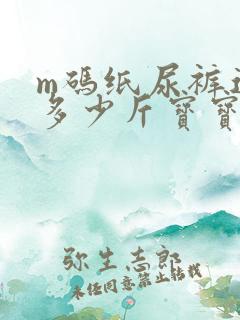 m码纸尿裤适
多少斤宝宝
弥生志郎
未经同意禁止转载